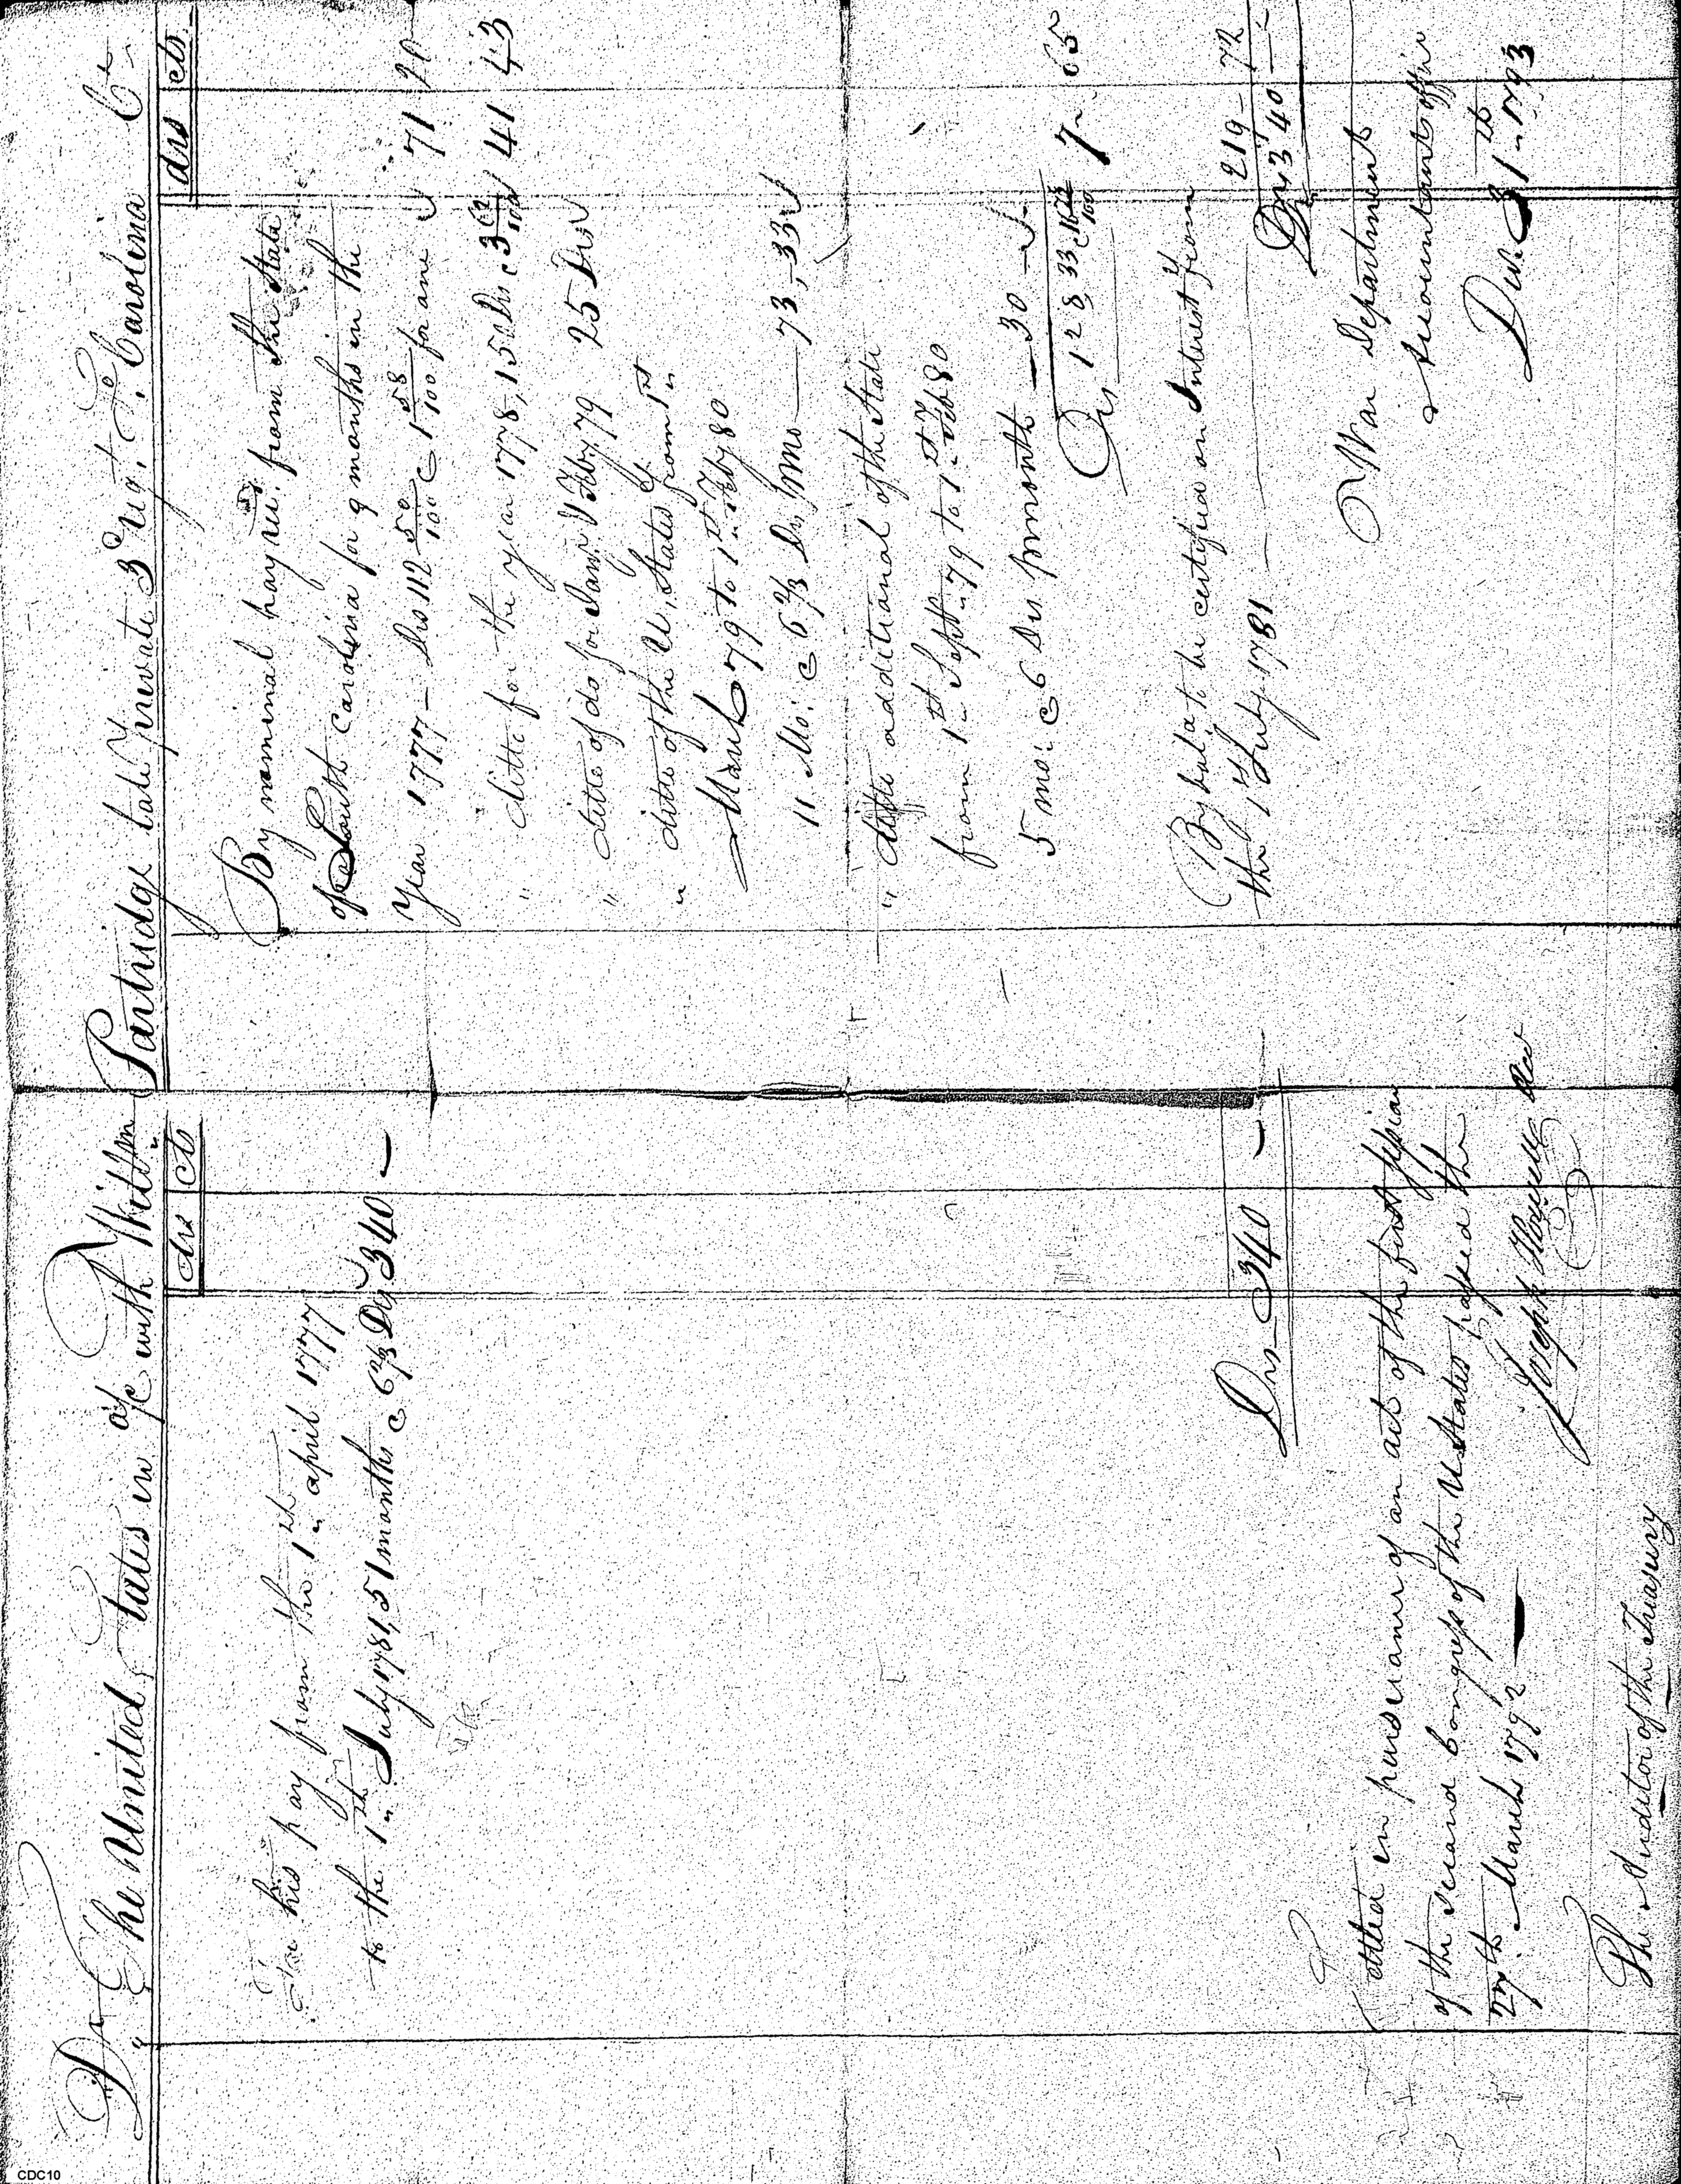 Dr The United States in a/c with William Partridge late Private 3d Regt. So. Carolina Cr
drs cts
To his pay from the 1st april 1777
to the 1st July 1781, 51 months @ 6 2/3 Drs 340 —
Drs 340 —
Settled in pursuance of an act of the first session
of the second Congress of the U States passed the
27th March 1792 —
Joseph Howell Acct
The Auditor of the Treasury
drs cts.
By nominal pay recd. from the State
of South Carolina for 9 months in the
year 1777 — Drs 112 50/100 @ 1 58/100 for one 71
" ditto for the year 1778, 150 Drs @ 3 62/100 41 43
" ditto of do for Jany & Feby 79 25 Drs
" ditto of the U, States from 1st
March 79 to 1st Feby 80
11 Mo: @ 6 2/3 Drs pr mo — 73, 33
" ditto additional of the State
from 1st Sept 79 to 1st Feb 80
5 mo: @ 6 Drs pr month — 30
Drs 128 33 @ 7 65
By bala. to be certified on Interest from
the 1st July 1781 — 219 - 72
Drs 340 —
War Department
Accountants office
Dec 31st 1793
CDC10